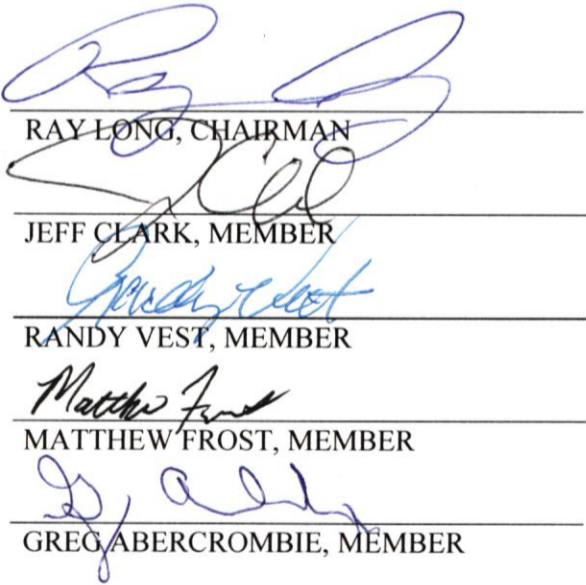 RAY LONG, CHAIRMAN
JEFF CLARK, MEMBER
RANDY VEST, MEMBER
Matthew Frost
MATTHEW FROST, MEMBER
GREG ABERCROMBIE, MEMBER